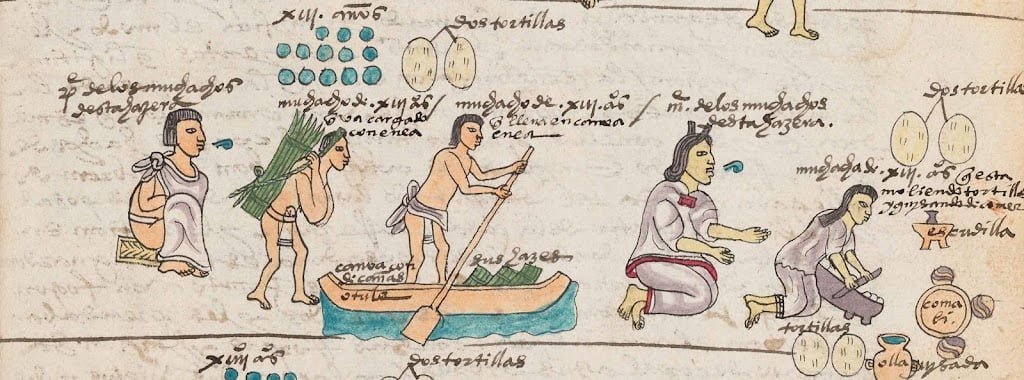 xiii. años
dos tortillas
pº de los muchachos
desta hazera
muchacho de .xiii aºs
q̃ va cargado
con enea
muchacho de .xiii. aºs.
q̃ lleva en canoa
enea
mª. de los muchachos
desta hazera.
dos tortillas
muchacha de .xiii. aºs q̃ esta
moliendo tortillas
y guisando de comer
escudilla
canoa con
de cañas
sus hazes
o tule
coma
li.
tortillas
olla guisada
xiiii aºs
dos tortillas